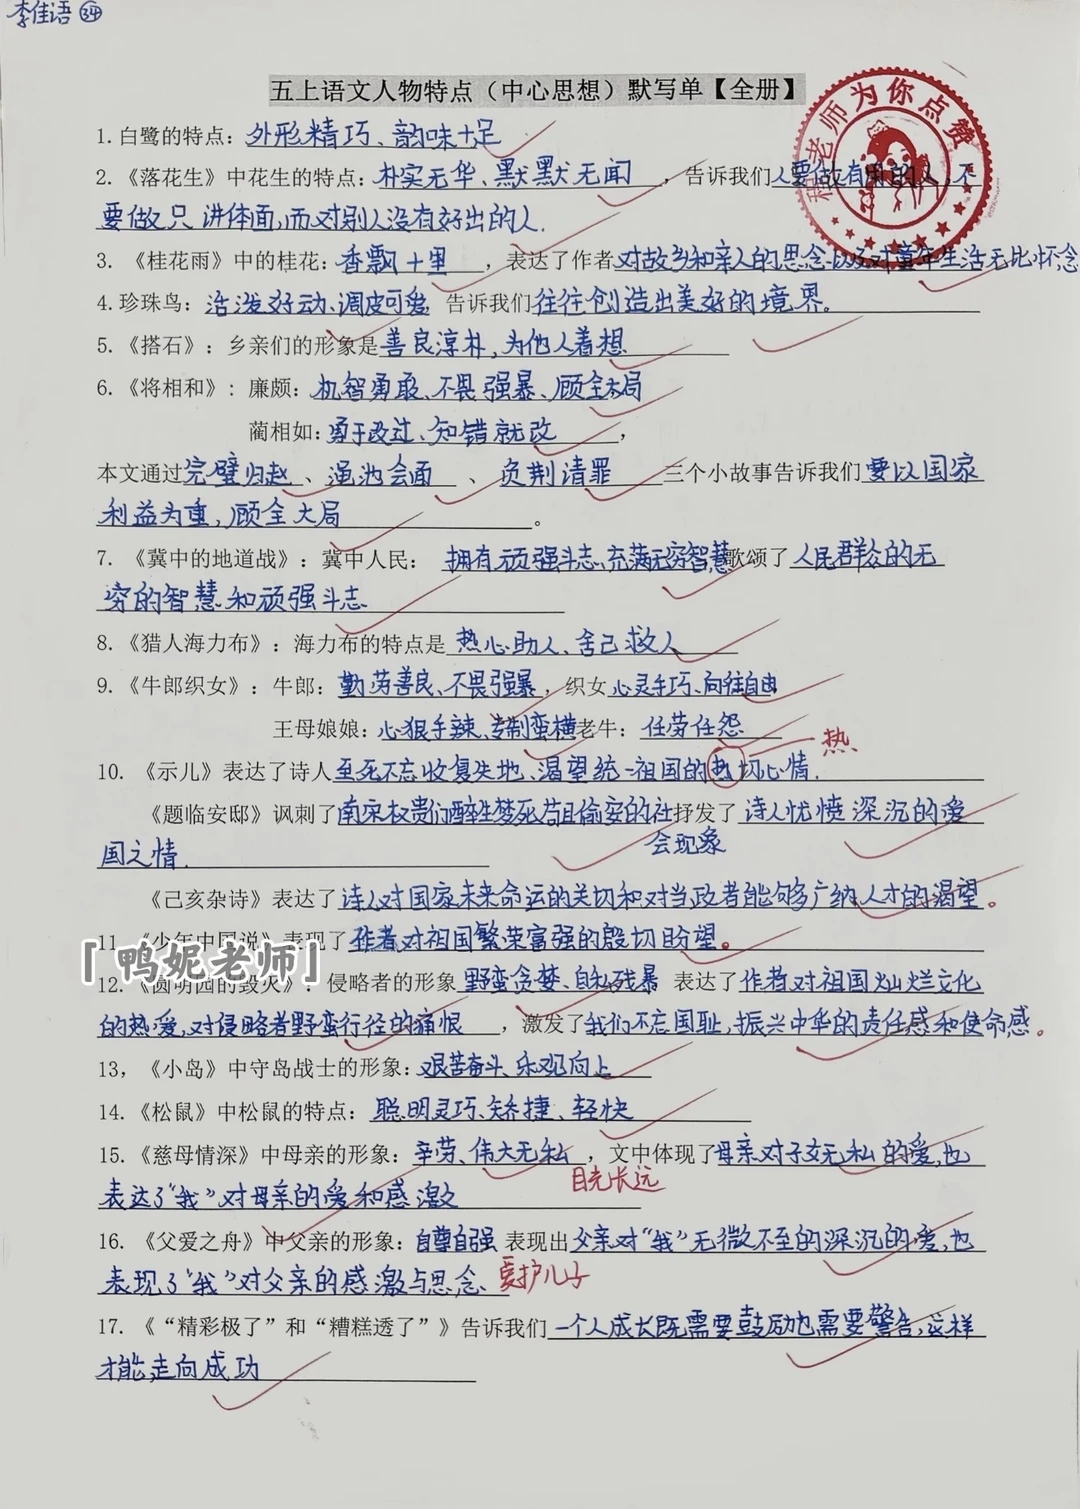 李佳语 34
五上语文人物特点（中心思想）默写单【全册】
程老师为你点赞
1. 白鹭的特点：外形精巧、韵味十足
2.《落花生》中花生的特点：朴实无华、默默无闻，告诉我们人要做有用的人，不
要做只讲体面，而对别人没有好出的人.
3. 《桂花雨》中的桂花：香飘十里，表达了作者对故乡和亲人的思念以及对童年生活无比怀念
4. 珍珠鸟：活泼好动、调皮可爱，告诉我们往往创造出美好的境界。
5.《搭石》：乡亲们的形象是善良淳朴，为他人着想
6.《将相和》：廉颇：机智勇敢、不畏强暴、顾全大局
蔺相如：勇于改过、知错就改，
本文通过完璧归赵、渑池会面、负荆请罪三个小故事告诉我们要以国家
利益为重，顾全大局。
7. 《冀中的地道战》：冀中人民：拥有顽强斗志、充满无穷智慧歌颂了人民群众的无
穷的智慧和顽强斗志
8.《猎人海力布》：海力布的特点是热心助人、舍己救人
9.《牛郎织女》：牛郎：勤劳善良、不畏强暴，织女心灵手巧、向往自由
王母娘娘：心狠手辣、专制蛮横老牛：任劳任怨
热
10. 《示儿》表达了诗人至死不忘收复失地、渴望统一祖国的热切心情.
《题临安邸》讽刺了南宋权贵们醉生梦死苟且偷安的社抒发了诗人忧愤深沉的爱
会现象
国之情.
《己亥杂诗》表达了诗人对国家未来命运的关切和对当政者能够广纳人才的渴望。
11.《少年中国说》表现了作者对祖国繁荣富强的殷切盼望。
「鸭妮老师」
12.《圆明园的毁灭》：侵略者的形象野蛮贪婪、自私残暴 表达了作者对祖国灿烂文化
的热爱，对侵略者野蛮行径的痛恨，激发了我们不忘国耻，振兴中华的责任感和使命感。
13，《小岛》中守岛战士的形象：艰苦奋斗、乐观向上
14.《松鼠》中松鼠的特点：聪明灵巧、矫捷、轻快
15.《慈母情深》中母亲的形象：辛劳、伟大无私，文中体现了母亲对子女无私的爱，也
目光长远
表达了“我”对母亲的爱和感激
16. 《父爱之舟》中父亲的形象：自尊自强 表现出父亲对“我”无微不至的深沉的爱，也
表现了“我”对父亲的感激与思念 爱护儿子
17. 《“精彩极了”和“糟糕透了”》告诉我们一个人成长既需要鼓励也需要警告，这样
才能走向成功